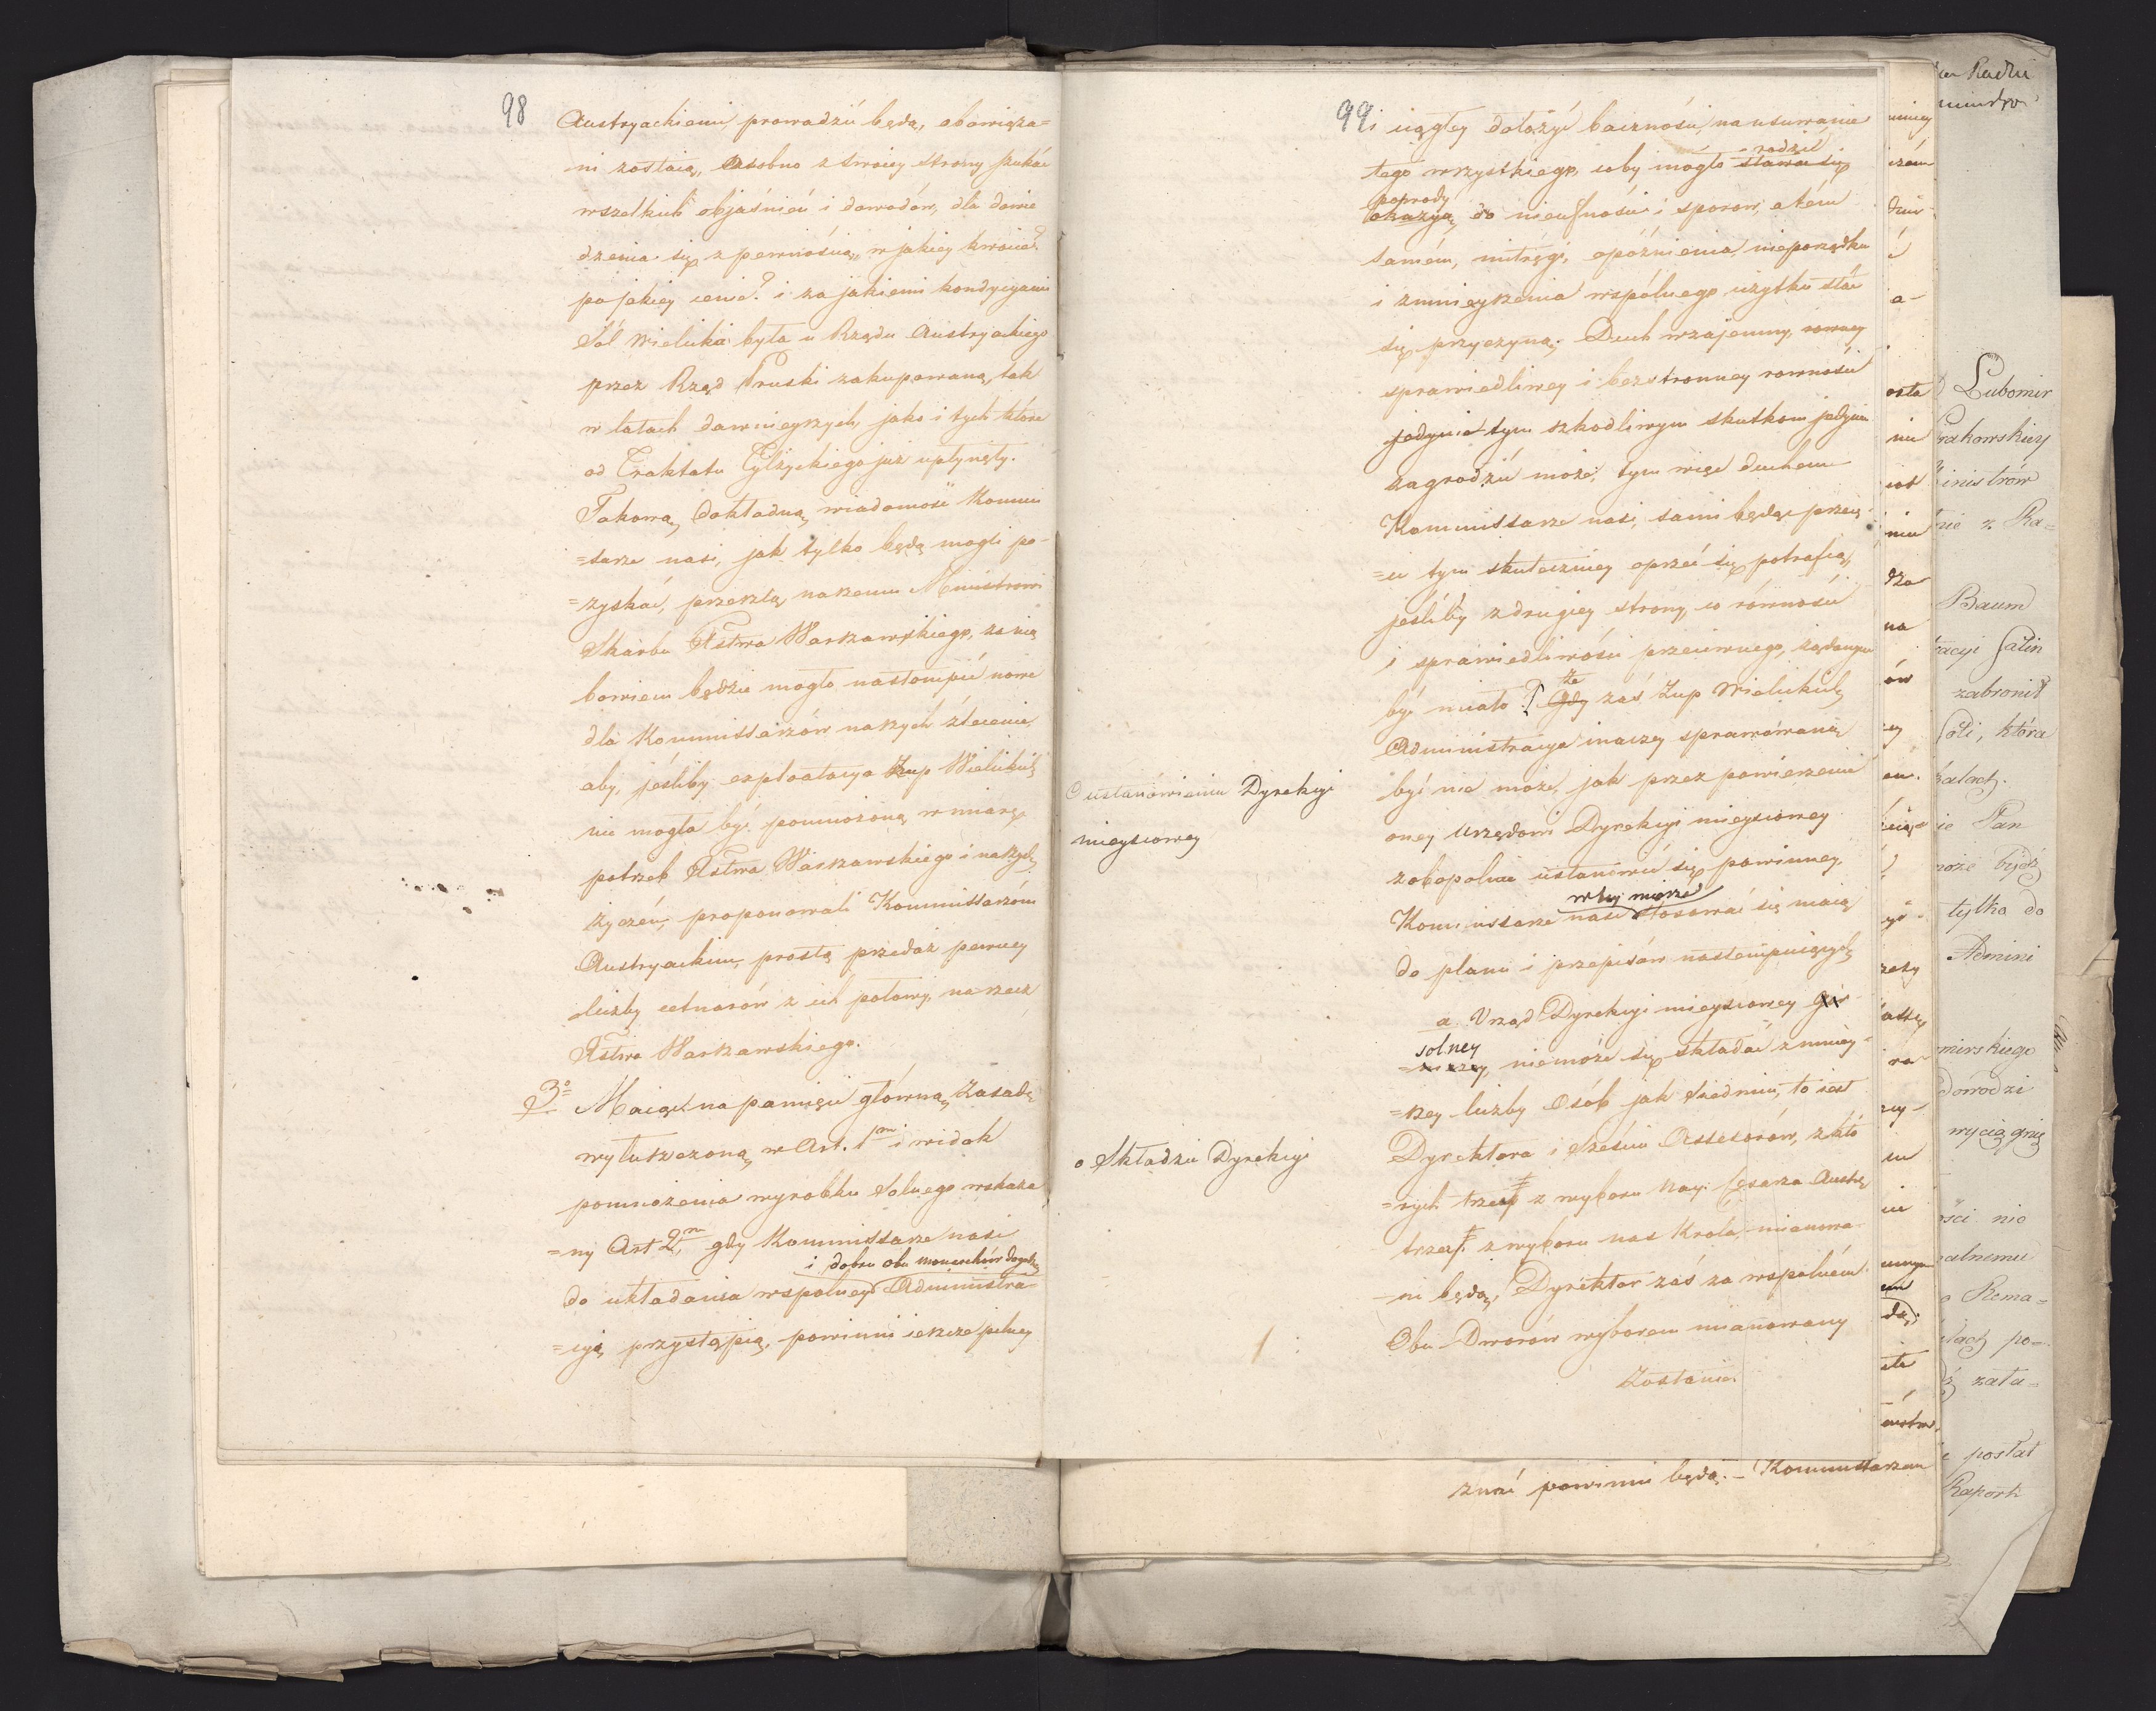 98
Austryackiemi, prowadzić będą, obowiąza=
ni zostaią, osobno z swoiey strony szukać
wszelkich objaśnień i dowodów, dla dowie
dzenia się z pewnością, w jakiey kwocie?
po jakiey cenie? i za jakiemi kondycyami
Sól Wielicka była u Rządu Austryackiego
przez Rząd Pruski zakupowaną, tak
w latach dawnieyszych, jako i tych które
od Traktatu Tylżyckiego już upłynęły.
Takową dokładną wiadomość Kommis
=sarze nasi, jak tylko będą mogli po-
=zyskać, przeszlą naszemu Ministrowi
Skarbu Xstwa Warszawskiego, za nią
bowiem będzie mogło nastąmpić nowe
dla Kommissarzów naszych zlecenie,
aby, jeśliby exploatacya Żup Wielickich
nie mogła być pomnożoną w miarę
potrzeb Xstwa Warszawskiego i naszych
życzeń, proponowali Kommissarzom
Austryackim, prostą przedaż pewney
liczby cetnarów z ich połowy, na rzecz
Xstwa Warszawskiego.
3º Maiąc na pamięci główną zasadę
wyłuszczoną w Art. 1m i widok
pomnożenia wyrobku Solnego wskaza
=ny Art 2m, gdy Kommissarze nasi
i dobru obu monarchów dogodn
do układania wspolney Administra-
=cyi przystąpią, powinni ieszcze pilney
99
i ciągłey dołożyć baczności, na usuwanie
rodzić
tego wszystkiego, coby mogło stawać się
powody
okazyą do nieufności i sporów, a tém
samém, mitręgi, opóźnienia, nieporządku
i zmnieyszenia wspólnego użytku stać
się przyczyną. Duch wzajemny, rowney
sprawiedliwey i bezstronney rowności
jedynie tym szkodliwym skutkom jedynie
zagrodzić może; tym więc duchem
Kommissarze nasi, sami będąc przeię
=ci tym skuteczniey oprzeć się potrafią,
jeśliby z drugiey strony, co równości
i sprawiedliwości przeciwnego, żądanym
być miało. Gdy zaś Żup Wielickich
Administracya inaczey sprawowaną
być nie może, jak przez powierzenie
oney Urzędowi Dyrekcyi mieyscowey
zobopolnie ustanowić się powinney,
w tey mierze
Kommissarze nasi stosować się maią
do planu i przepisów nastempuiących
a. Urząd Dyrekcyi mieyscowey Gór
solney
=niczey, niemoże się składać z mniey-
=szey liczby Osób jak Siedmiu, to iest
Dyrektora i Sześciu Assessorów, z któ
=rych trzech z wyboru Nay: Cesarza Austr:
trzech z wyboru nas Króla, mianowa
-ni będą, Dyrektor zaś za wspolném
Obu Dworów wyborem mianowany
zostanie.
O ustanowieniu Dyrekcyi
mieyscowey
o Składzie Dyrekcyi
1
znać powinni będą. – Kommissarzom
Radzie
Lubomir
Krakowskiey
inistrów
nie z Ra=
Baum
tacyi Salin
zabronił
Soli, która
ie Pan
noże bydź
tylko do
Admini
mirskiego
dowodzi
wyciągnię
ości nie
alnemu
o Rema=
dach po=
zała=
posłał
Raport